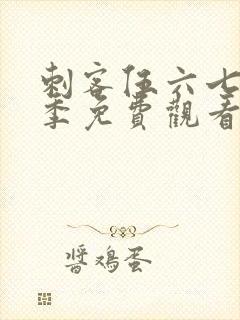 刺客伍六七
季免費觀看
醬鸡蛋